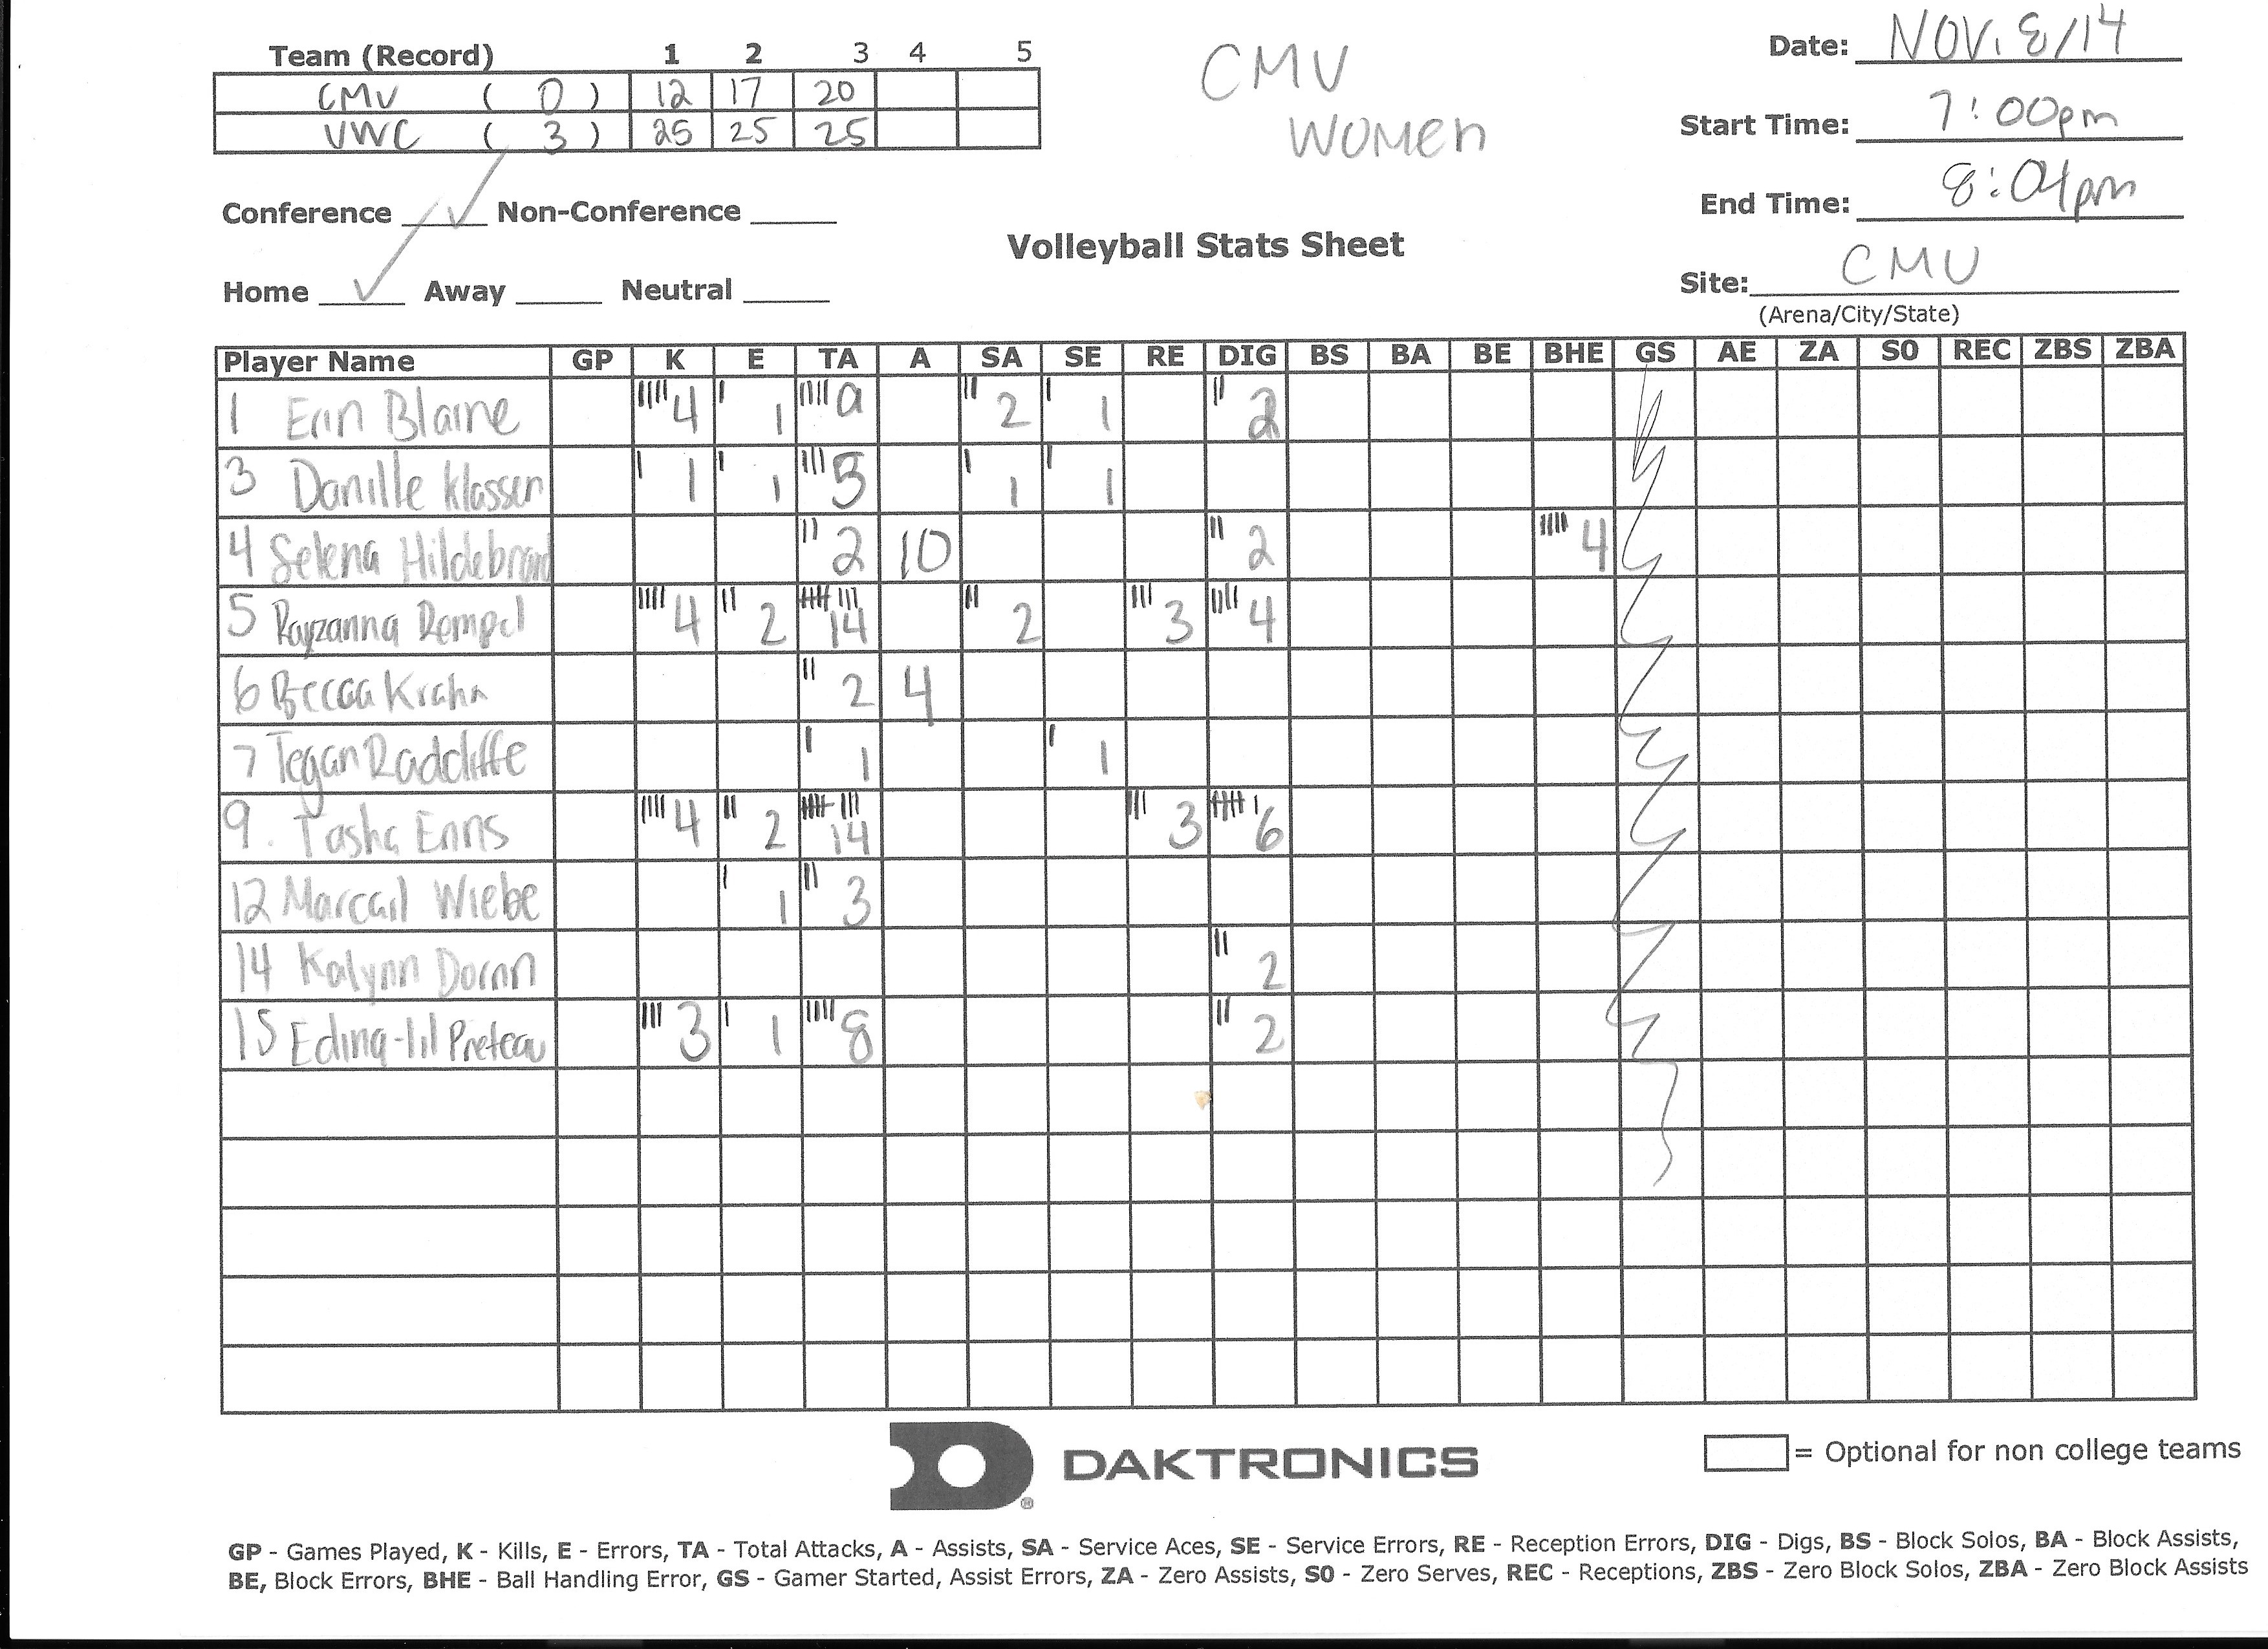 Team (Record) 1 2 3 4 5
CMU ( 0 ) 12 17 20
UWC ( 3 ) 25 25 25
CMU
Women
Date: NOV. 8/14
Start Time: 7:00pm
End Time: 8:04pm
Conference ✓ Non-Conference
Volleyball Stats Sheet
Home ✓ Away Neutral
Site: CMU
(Arena/City/State)
Player Name GP K E TA A SA SE RE DIG BS BA BE BHE GS AE ZA SO REC ZBS ZBA
1 Erin Blaine 4 1 9 2 1 2
3 Danille Klassen 1 1 5 1 1
4 Selena Hildebrand 2 10 2 4
5 Rayzanna Rempel 4 2 14 2 3 4
6 Becca Krahn 2 4
7 Tegan Radcliffe 1 1
9. Tasha Enns 4 2 14 3 6
12 Marcail Wiebe 1 3
14 Kalynn 2
15 Edina-lil Preteau 3 1 8 2
DAKTRONICS
= Optional for non college teams
GP - Games Played, K - Kills, E - Errors, TA - Total Attacks, A - Assists, SA - Service Aces, SE - Service Errors, RE - Reception Errors, DIG - Digs, BS - Block Solos, BA - Block Assists,
BE, Block Errors, BHE - Ball Handling Error, GS - Gamer Started, Assist Errors, ZA - Zero Assists, S0 - Zero Serves, REC - Receptions, ZBS - Zero Block Solos, ZBA - Zero Block Assists